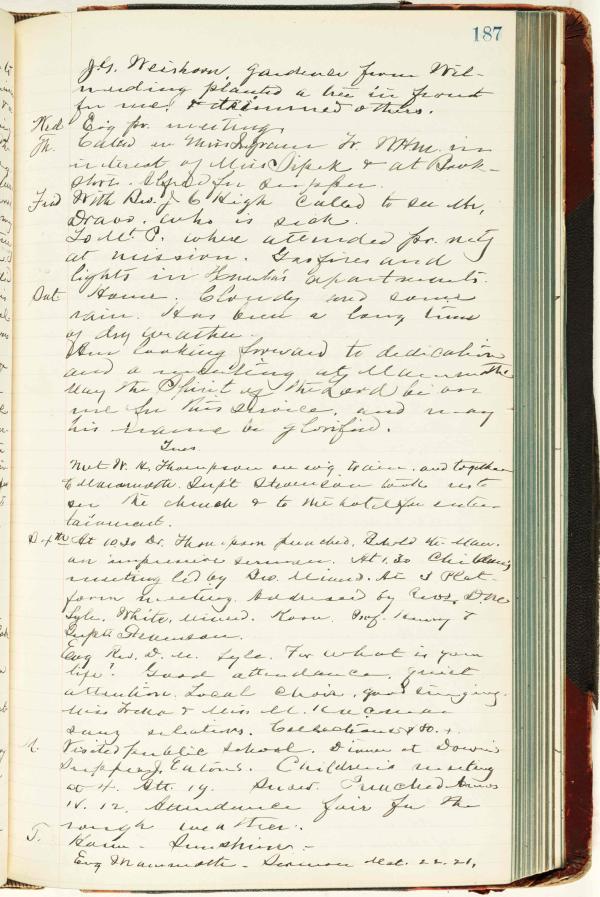 187
J. G. Weishorn, gardener from Wil-
merding planted a tree in front
for me, & trimmed others.
Wed Evg pr. meeting.
Th. Called on Miss Ingram Tr. WHM. in
interest of Miss Sipek & at Book-
store. Stopped for supper.
Frid With Rev. J. C High called to see Mr.
Dravo, who is sick.
To Mt P. where attended pr. mtg
at mission. Gas fires and
lights in apartments.
Sat. Home. Cloudy and some
rain. Has been a long time
of dry weather.
Am looking forward to dedication
and a meeting at Mammoth
May the Spirit of the Lord be on
me for this service, and may
his name be glorified.
Tues.
Met W. H. Thompson on evg train, and together
to Mammoth. Supt Stevenson took us to
see the church & to the hotel for enter-
tainment.
S 4th At 10.30 Dr. Thompson preached, Behold the Man.
an impressive sermon. At 1.30 Children's
meeting led by Geo. Minerd. At 3 Plat-
form meeting. Addressed by Revs. D M
Lyle, White, Minerd, Koon, Prof. Henry &
Supt Stevenson.
Evg Rev. D. M. Lyle. For what is your
life? Good attendance, quiet
attention. Local choir, good singing.
Miss & Miss M.
sang solations. Collections $80.+
M. Visited public school. Dinner at
Supper J. Eaton's. Children's meeting
at 4. Att. 19. Snow. Preached Amos
14. 12, Attendance fair for the
rough weather.
T. Home - Sunshine. -
Evg Mammoth - Sermon Mat. 22. 21.